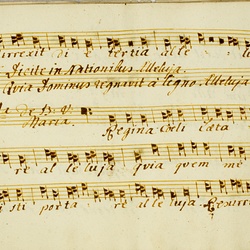 surrexit di tertia alle
Dicite in Nationibus Alleluja.
Quia Dominus regnavit a ligno. Alleluja
de B. V.
Maria. Regina Caeli laeta
re al le luja quia quem me
i sti porta re al le luja. Resurre